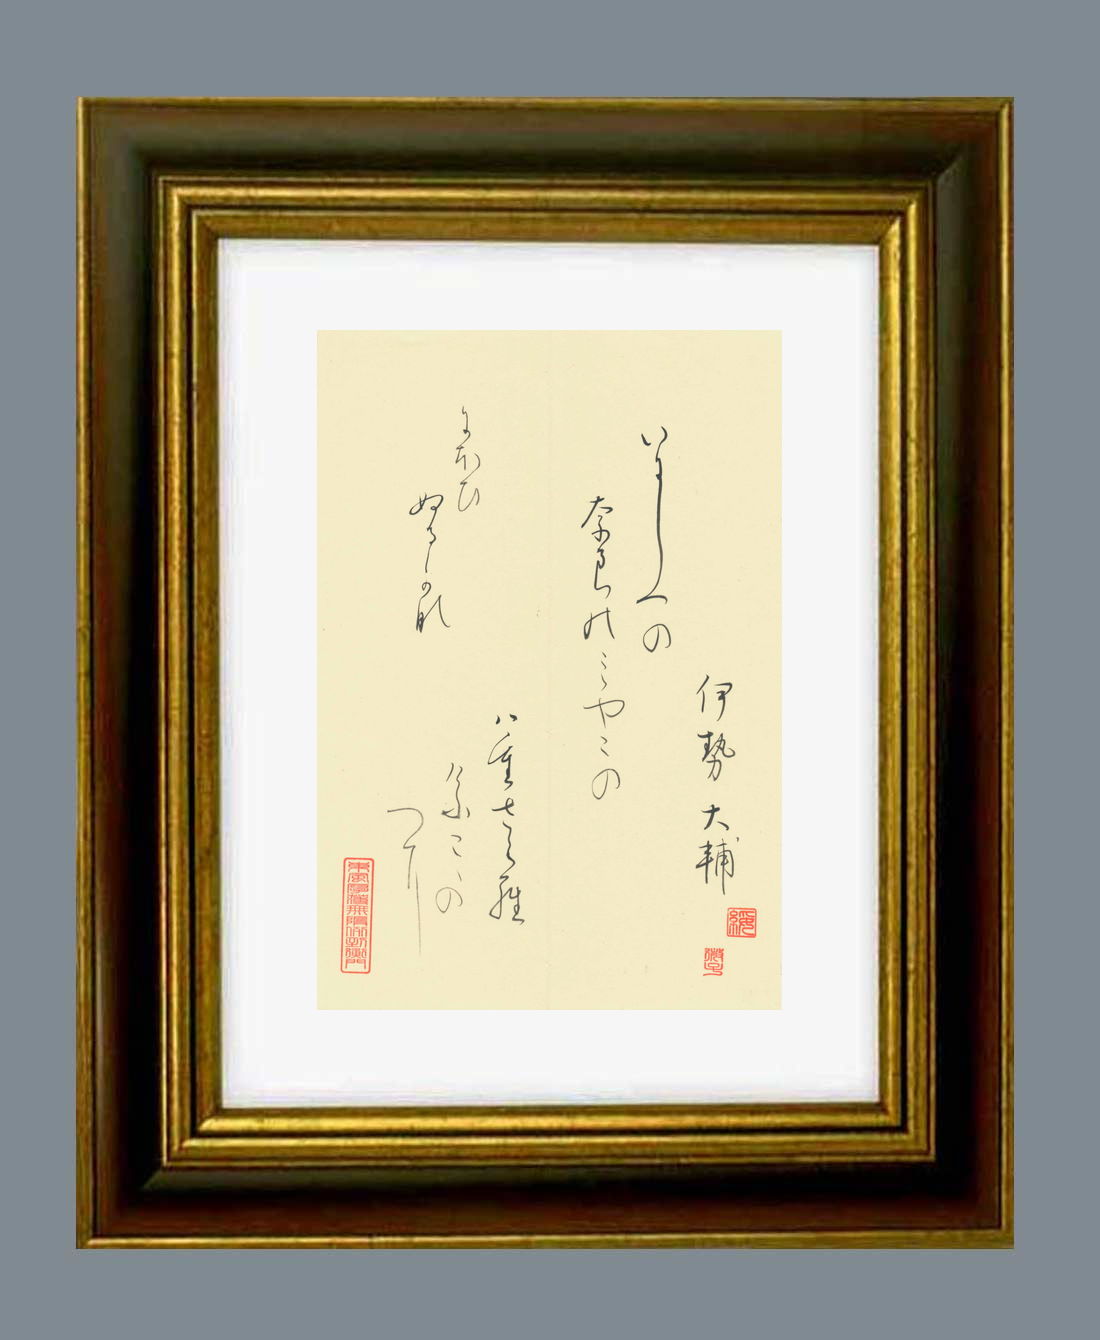 伊勢大輔
いにしへの
奈良のみやこの
八重さくら
けふこゝの
へに
にほひ
ぬるかな